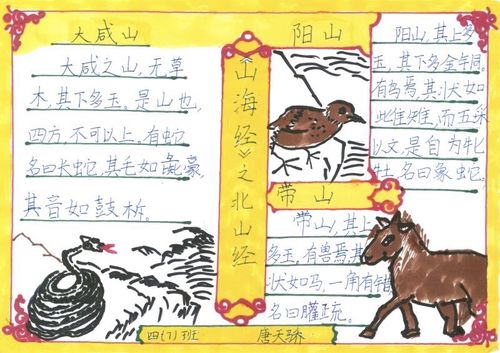 大咸山
大咸之山，无草
木，其下多玉，是山也，
四方，不可以上。有蛇
名曰长蛇，其毛如彘豪，
其音如鼓柝。
《山海经》之北山经
阳山
阳山，其上多
玉，其下多金铜。
有鸟焉，其状如
雌雉，而五采
以文，是自为牝
牡，名曰象蛇。
带山
带山，其上
多玉，有兽焉其
状如马，一角有错
名曰䑏疏。
四（7）班
唐天骄